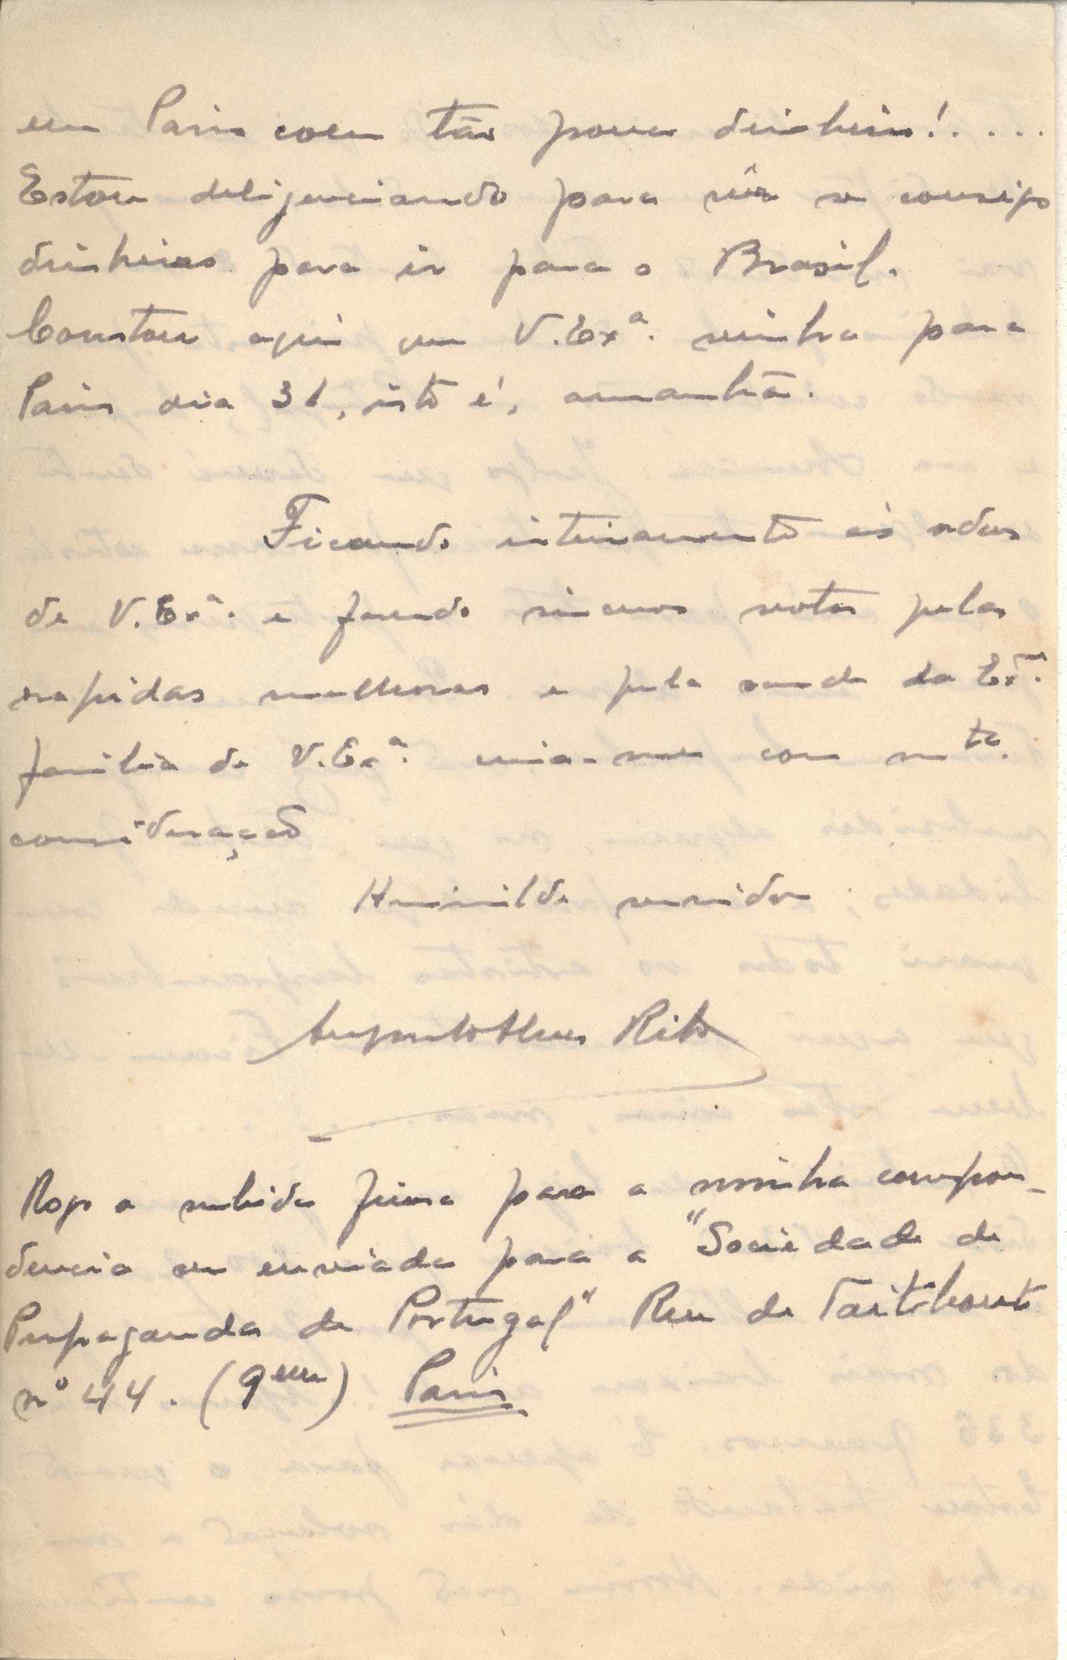 em Paris com tão pouco dinheiro!....
Estou deligenciando para vêr se consigo
dinheiro para ir para o Brasil.
Constou aqui que V. Exª. vinha para
Paris dia 31, isto é, amanhã.
Ficando inteiramente ás ordens
de V. Exª. e fazendo sinceros votos pelas
rapidas melhoras e pela saude da Exma.
familia de V. Exª. com mto.
consideração
Humilde servidor
Augusto Alves Rita
Rogo a subida fineza para a minha correspon-
dencia ser enviada para a "Sociedade de
Propaganda de Portugal" Rue de Taitbout
nº 44. (9em) Paris